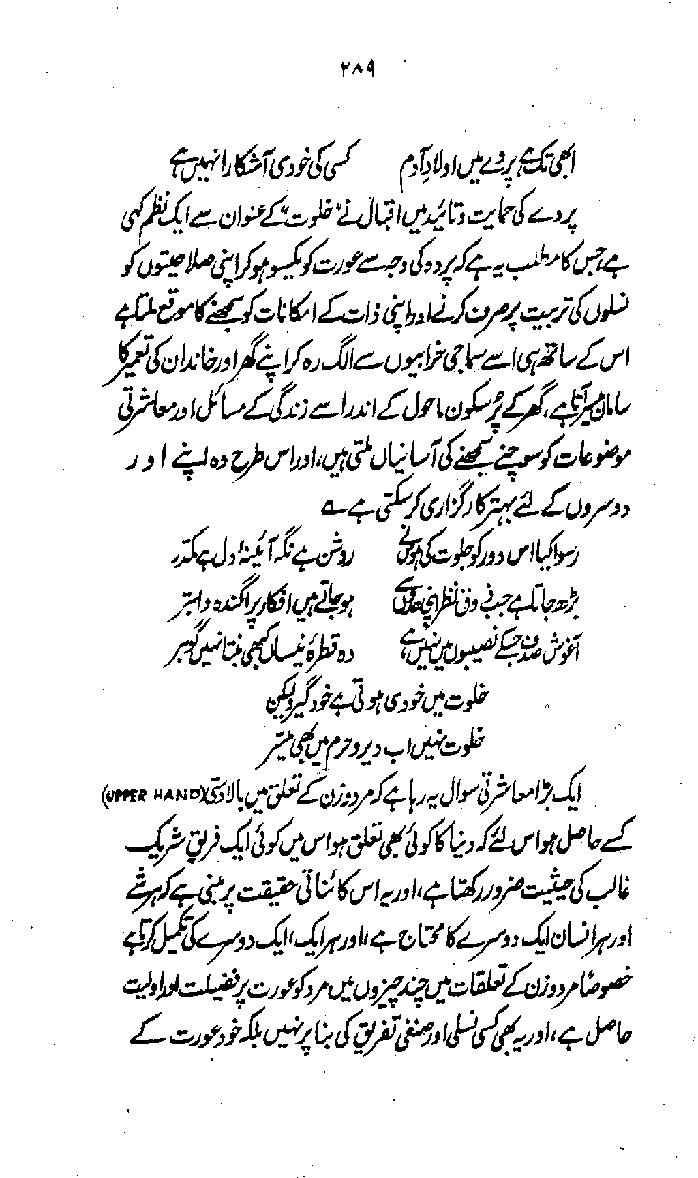 ۲۸۹
ابھی تک ہے پردے میں اولادِ آدم کسی کی خودی آشکارا نہیں ہے
پردے کی حمایت و تائید میں اقبال نے "خلوت" کے عنوان سے ایک نظم کہی
ہے، جس کا مطلب یہ ہے کہ پردہ کی وجہ سے عورت کو یکسو ہو کر اپنی صلاحیتوں کو
نسلوں کی تربیت پر صرف کرنے اور اپنی ذات کے امکانات کو سمجھنے کا موقع ملتا ہے
اس کے ساتھ ہی اسے سماجی خرابیوں سے الگ رہ کر اپنے گھر اور خاندان کی تعمیر کا
سامان میسر آتا ہے، گھر کے پُر سکون ماحول کے اندر اسے زندگی کے مسائل اور معاشرتی
موضوعات کو سوچنے سمجھنے کی آسانیاں ملتی ہیں، اور اس طرح وہ اپنے اور
دوسروں کے لئے بہتر کارگزاری کر سکتی ہے ؎
رسوا کیا اس دور کو جلوت کی ہوس نے روشن ہے نگہ آئینۂ دل ہے مکدر
بڑھ جاتا ہے جب ذوقِ نظر اپنی حدوں سے ہو جاتے ہیں افکار پراگندہ و ابتر
آغوشِ صدف جس کے نصیبوں میں نہیں ہے وہ قطرۂ نیساں کبھی بنتا نہیں گوہر
خلوت میں خودی ہوتی ہے خودگیر ولیکن
خلوت نہیں اب دیر و حرم میں بھی میسّر
ایک بڑا معاشرتی سوال یہ رہا ہے کہ مرد و زن کے تعلق میں بالادستی (UPPER HAND)
کسے حاصل ہو اس لئے کہ دنیا کا کوئی بھی تعلق ہو اس میں کوئی ایک فریق شریک
غالب کی حیثیت ضرور رکھتا ہے، اور یہ اس کائناتی حقیقت پر مبنی ہے کہ ہر شے
اور ہر انسان ایک دوسرے کا محتاج ہے، اور ہر ایک، ایک دوسرے کی تکمیل کرتا ہے
خصوصاً مرد و زن کے تعلقات میں چند چیزوں میں مرد کو عورت پر فضیلت اور اولیت
حاصل ہے، اور یہ بھی کسی نسلی اور صنفی تفریق کی بنا پر نہیں بلکہ خود عورت کے